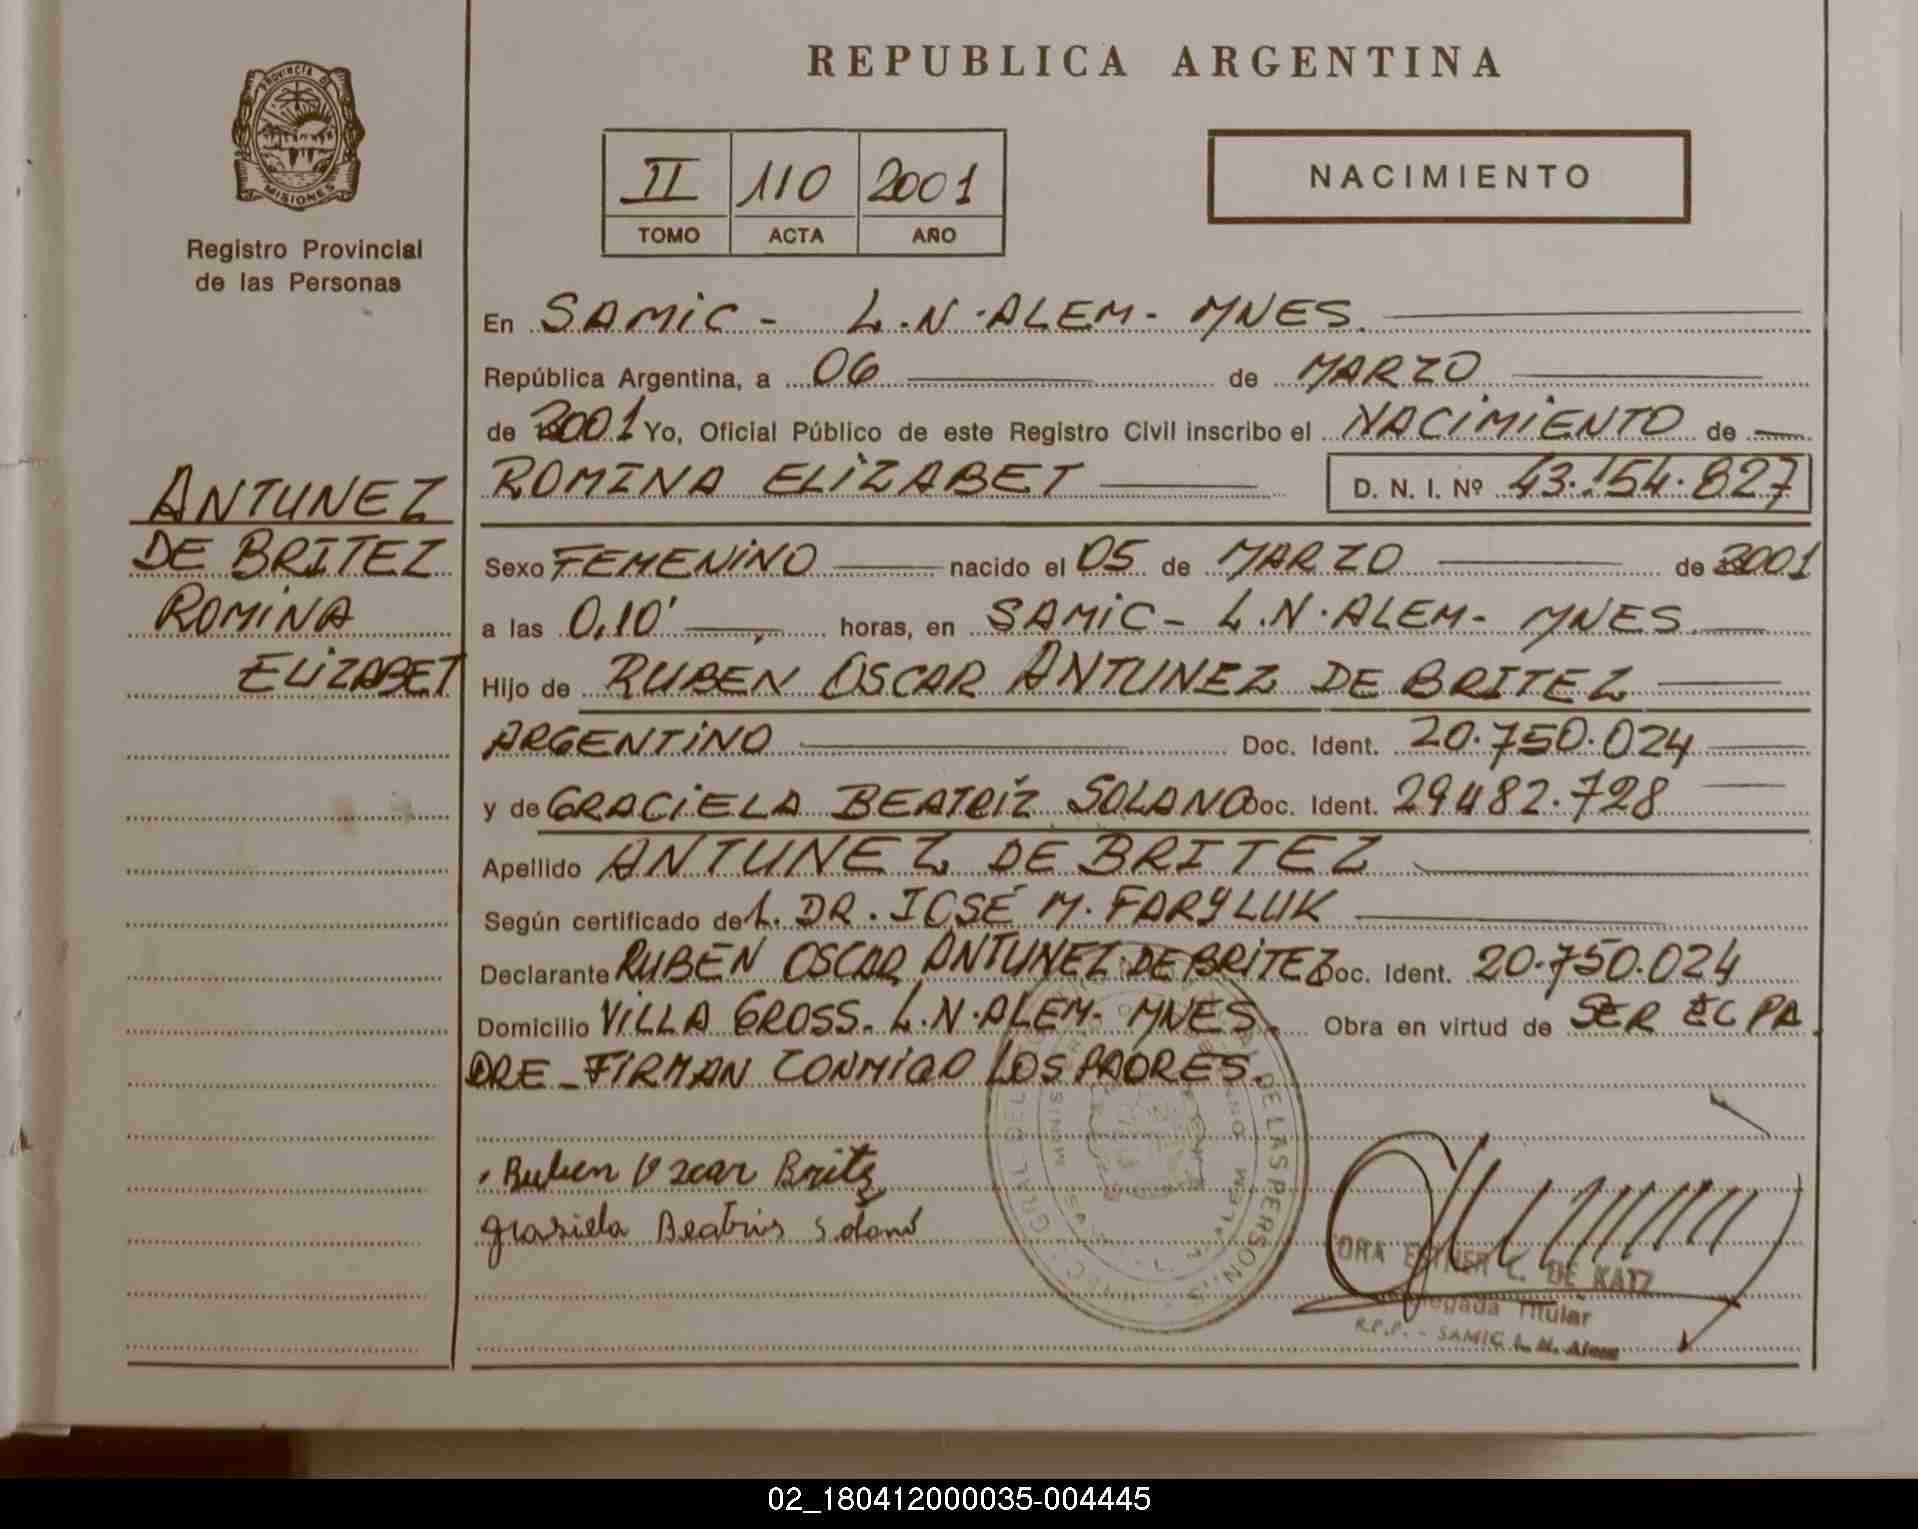 REPUBLICA ARGENTINA
PROVINCIA DE
MISIONES
Registro Provincial
de las Personas
II 110 2001
TOMO ACTA AÑO
NACIMIENTO
ANTUNEZ
DE BRITEZ
ROMINA
ELIZABET
En SAMIC - L.N.ALEM - MNES.
República Argentina, a 06 de MARZO
de 2001 Yo, Oficial Público de este Registro Civil inscribo el NACIMIENTO de
ROMINA ELIZABET D. N. I. Nº 43.154.827
Sexo FEMENINO nacido el 05 de MARZO de 2001
a las 0,10' horas, en SAMIC - L.N.ALEM - MNES.
Hijo de RUBEN OSCAR ANTUNEZ DE BRITEZ
ARGENTINO Doc. Ident. 20.750.024
y de GRACIELA BEATRIZ SOLANO Doc. Ident. 29482.728
Apellido ANTUNEZ DE BRITEZ
Según certificado de L. DR. JOSÉ M. FARYLUK
Declarante RUBEN OSCAR ANTUNEZ DE BRITEZ Doc. Ident. 20.750.024
Domicilio VILLA GROSS. L.N.ALEM - MNES. Obra en virtud de SER EL PA
DRE - FIRMAN CONMIGO LOS PADRES.
Ruben Oscar Britz
Grasiela Beatris Solano
DE LAS PERSONAS
DRA ESTHER C. DE KATZ
Delegada Titular
R.P.P. - SAMIC L. N. Alem
02_180412000035-004445